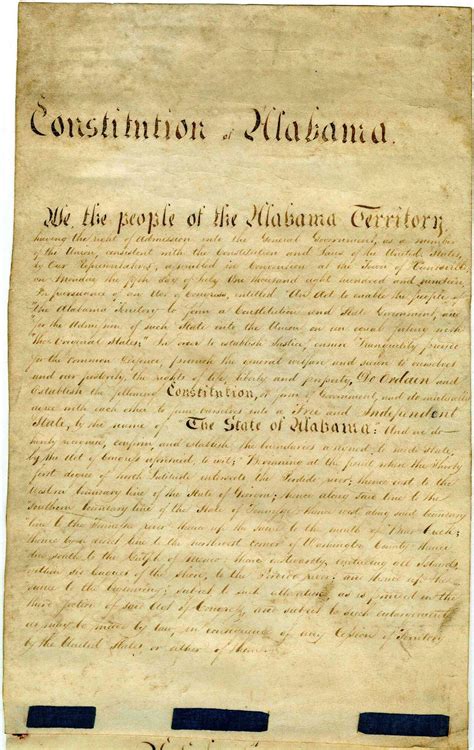 Constitution of Alabama.
We the people of the Alabama Territory
having the right of admission into the General Government, as a member
of the Union, consistent with the Constitution and Laws of the United States,
by Our Representatives, assembled in Convention at the Town of
on Monday the fifth day of July One thousand eight hundred and nineteen
In pursuance of an Act of Congress, entitled "An Act to enable the people of
the Alabama Territory to form a Constitution and State Government, and
for the admission of such State into the Union on an equal footing with
the Original States," In order to establish Justice, ensure Tranquility, provide
for the Common Defence, promote the general welfare and secure to ourselves
and our posterity, the rights of life, liberty and property, Do Ordain and
establish the following Constitution, or form of Government, and do mutually
agree with each other to form ourselves into a Free and Independent
State, by the name of The State of Alabama: And we do
hereby recognize, confirm and establish the boundaries assigned to said State,
by the Act of Congress aforesaid, to wit; "Beginning at the point where the thirty
first degree of north Latitude intersects the Perdido river; thence east to the
Western boundary line of the State of Georgia; thence along said line to the
Southern boundary line of the State of Tennessee; thence west, along said boundary
line to the Tennessee river thence up the same to the mouth of Bear Creek;
thence by a direct line to the northwest corner of Washington County; thence
due south to the Gulph of Mexico; thence eastwardly, including all Islands
within six leagues of the shore, to the Perdido river; and thence up the
same to the beginning; subject to such alteration as is provided in the
third section of said Act of Congress, and subject to such enlargement
as may be made by law, in consequence of any cession of Territory
by the United States or either of them.